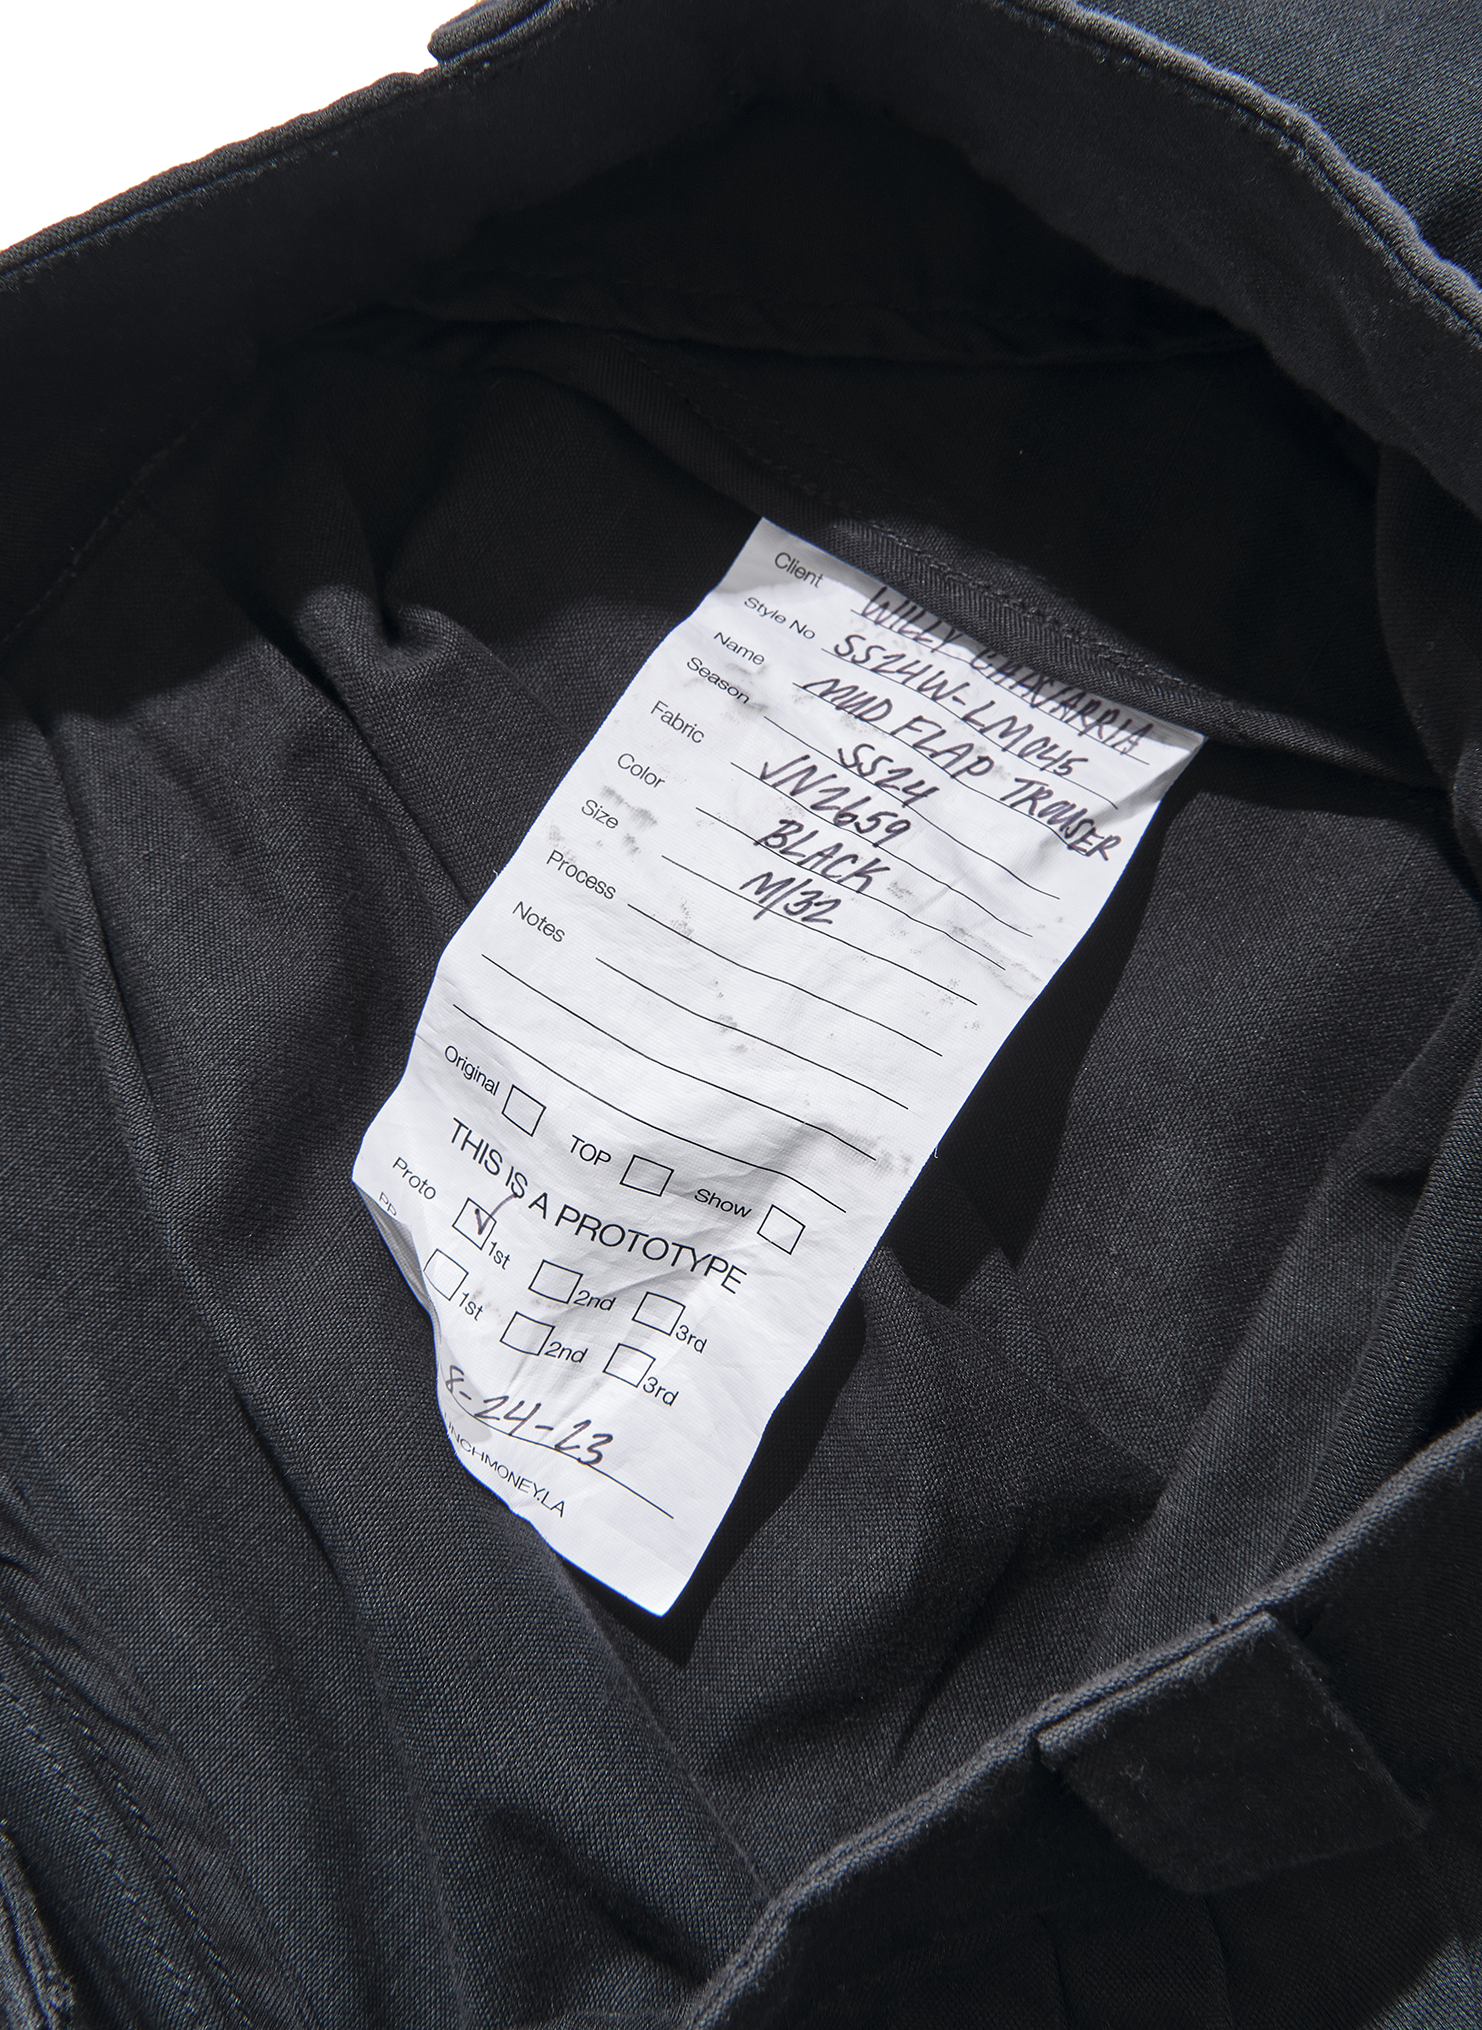 Client WILLY CHAVARRIA
Style No SS24W-LM045
Name MUD FLAP TROUSER
Season SS24
Fabric VN2659
Color BLACK
Size M/32
Process
Notes
Original TOP Show
THIS IS A PROTOTYPE
Proto 1st 2nd 3rd
PP 1st 2nd 3rd
8-24-23
UNCHMONEY.LA